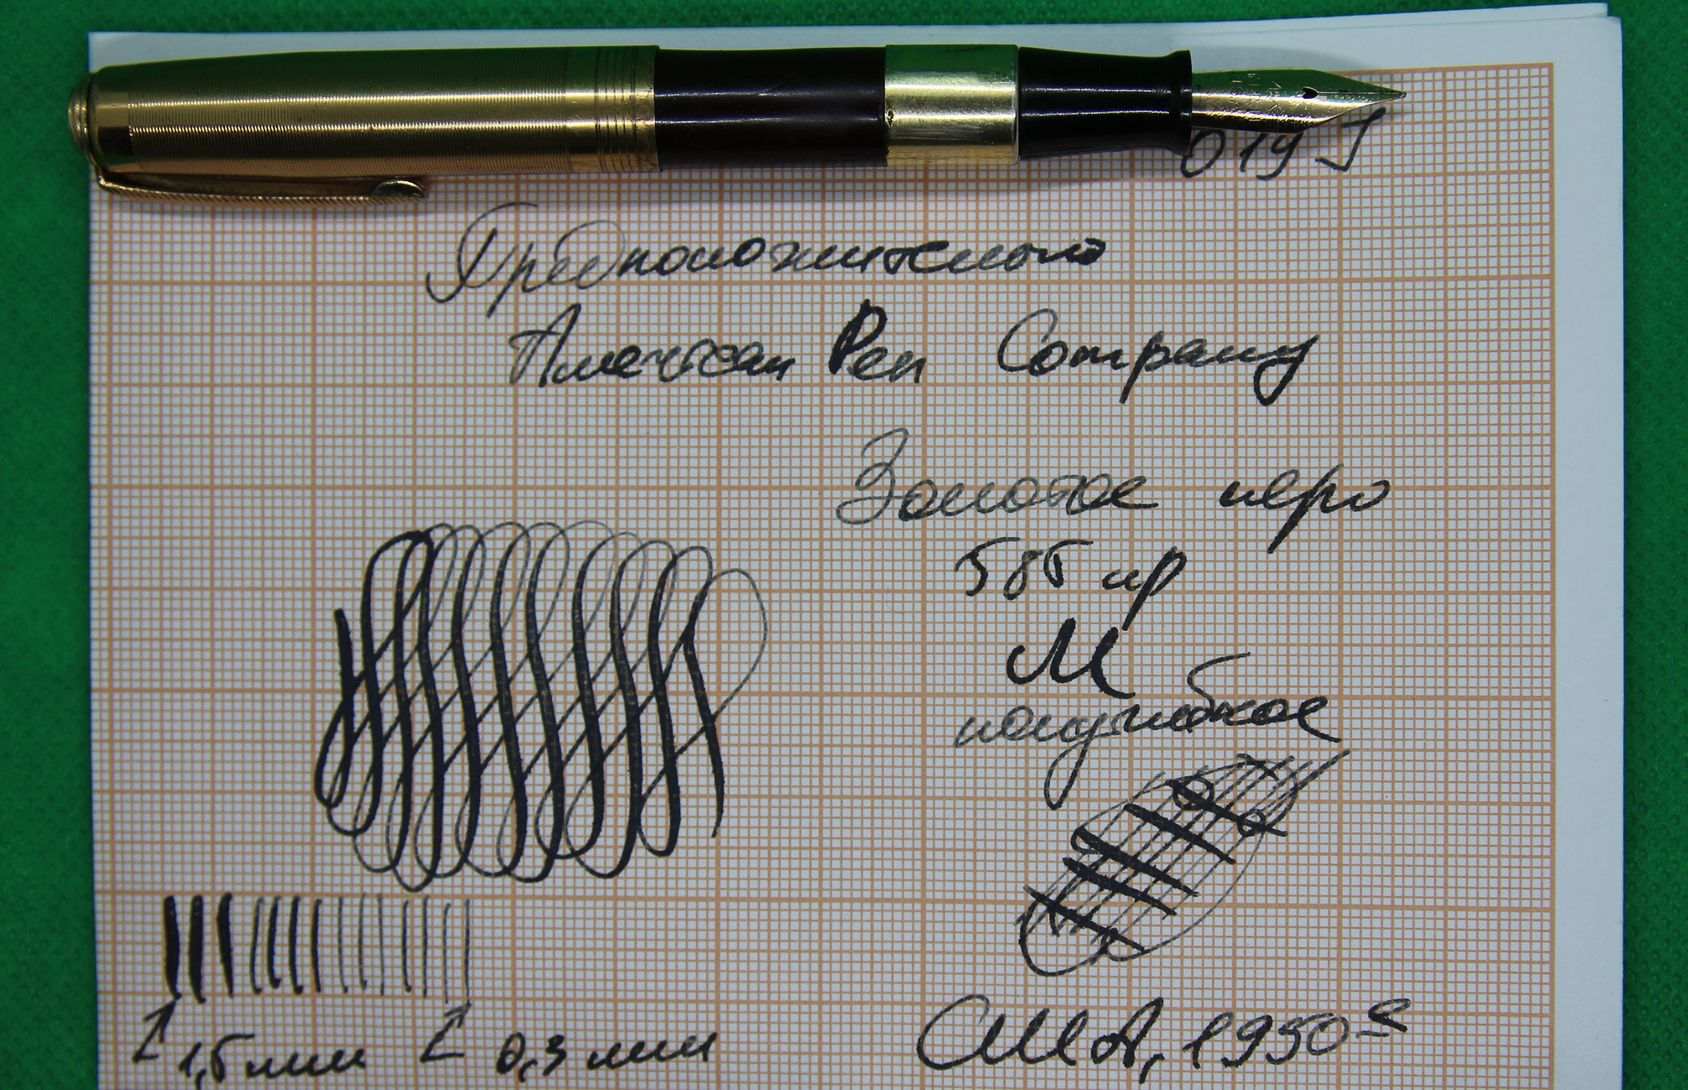 019 J
Предположительно
American Pen Company
Золотое перо
585 пр
M
полугибкое
1,5 мм 0,3 мм
США, 1950s